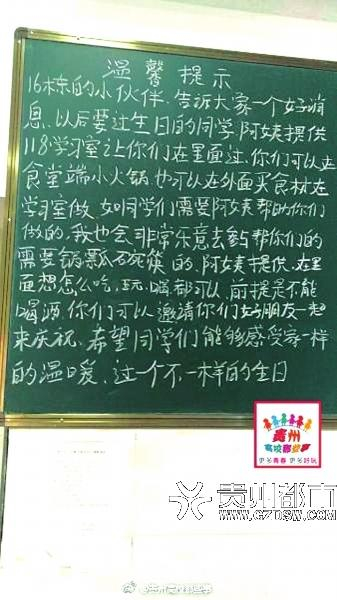 温馨提示
16栋的小伙伴,告诉大家一个好消
息,以后要过生日的同学,阿姨提供
118学习室让你们在里面过,你们可以在
食堂端小火锅,也可以在外面买食材在
学习室做,如同学们需要阿姨帮助你们
做的,我也会非常乐意去参与帮你们的
需要锅瓢碗筷的,阿姨提供,在里
面想怎么吃,玩,喝都可以,前提是不能
喝酒,你们可以邀请你们好朋友一起
来庆祝,希望同学们能够感受家一样
的温暖,过一个不一样的生日
贵州
高校那些事
更多青春 更多好玩
贵州都市
www.gzdsw.com